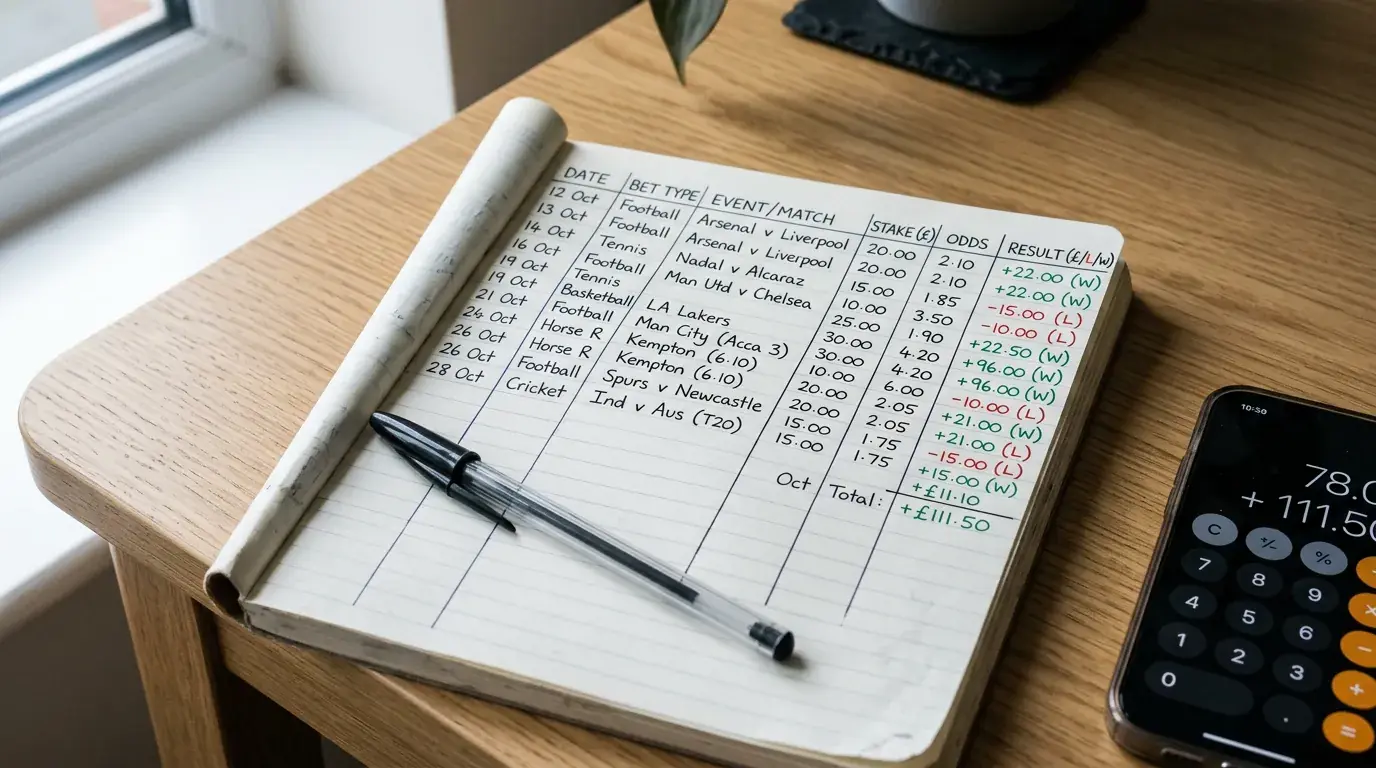 DATE BET TYPE EVENT/MATCH STAKE (£) ODDS RESULT (£/L/W)
12 Oct Football Arsenal v Liverpool 20.00 2.10 +22.00 (W)
13 Oct Football Arsenal v Liverpool 20.00 2.10 +22.00 (W)
14 Oct Tennis Nadal v Alcaraz 15.00 1.85 -15.00 (L)
16 Oct Football Man Utd v Chelsea 10.00 3.50 -10.00 (L)
19 Oct Tennis 25.00 1.90 +22.50 (W)
19 Oct Basketball LA Lakers 30.00 4.20 +96.00 (W)
21 Oct Football Man City (Acca 3) 30.00 4.20 +96.00 (W)
24 Oct Horse R Kempton (6.10) 10.00 6.00 -10.00 (L)
26 Oct Horse R Kempton (6.10) 20.00 2.05 +21.00 (W)
26 Oct Football Spurs v Newcastle 20.00 2.05 +21.00 (L)
28 Oct Cricket Ind v Aus (T20) 15.00 1.75 -15.00 (L)
15.00 1.75 +15.00 (W)
+£11.10
Oct Total: +£111.50
10:50
78.0
+ 111.50
C +/- %
7 8 9 ×
4 5 6 −
1 2 3 +
0 . =